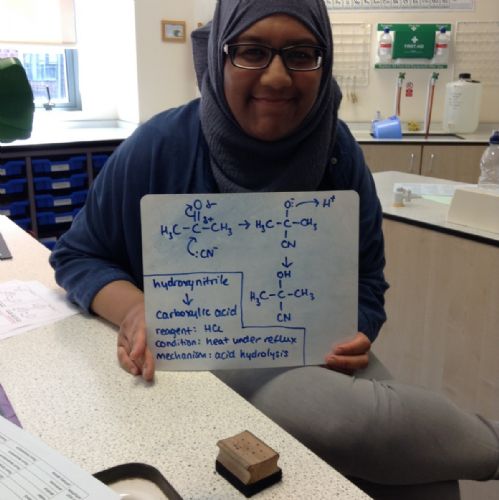 O δ-
H₃C-C-CH₃ δ+
:CN⁻
→
O:⁻ → H⁺
H₃C-C-CH₃
CN
↓
OH
H₃C-C-CH₃
CN
hydroxynitrile
↓
carboxylic acid
reagent: HCl
condition: heat under reflux
mechanism: acid hydrolysis
FIRST AID